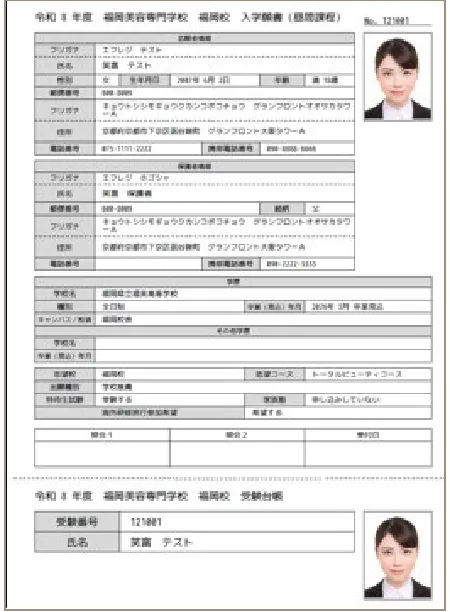 令和 8 年度 福岡美容専門学校 福岡校 入学願書（昼間課程）
No. 121001
志願者情報
フリガナ エフレジ テスト
氏名 笑富 テスト
性別 女 生年月日 2007年 4月 2日 年齢 満 18歳
郵便番号 600-0009
フリガナ キョウトシシモギョウクカンコボコチョウ グランフロントオオサカタワーA
住所 京都府京都市下京区函谷鉾町 グランフロント大阪タワーA
電話番号 075-1111-2222 携帯電話番号
保護者情報
フリガナ エフレジ ホゴシャ
氏名 笑富 保護者
郵便番号 600-0009 続柄 父
フリガナ キョウトシシモギョウクカンコボコチョウ グランフロントオオサカタワーA
住所 京都府京都市下京区函谷鉾町 グランフロント大阪タワーA
電話番号 携帯電話番号 090-2222-3333
学歴
学校名 福岡県立福美高等学校
種別 全日制 卒業（見込）年月 2026年 3月 卒業見込
キャンパス / 校舎 福岡校舎
その他学歴
学校名
卒業（見込）年月
志望校 福岡校 志望コース トータルビューティコース
出願種別 学校推薦
特待生試験 受験する 家族館 申し込みしていない
海外研修旅行参加希望 希望する
照合1 照合2 受付日
令和 8 年度 福岡美容専門学校 福岡校 受験台帳
受験番号 121001
氏名 笑富 テスト